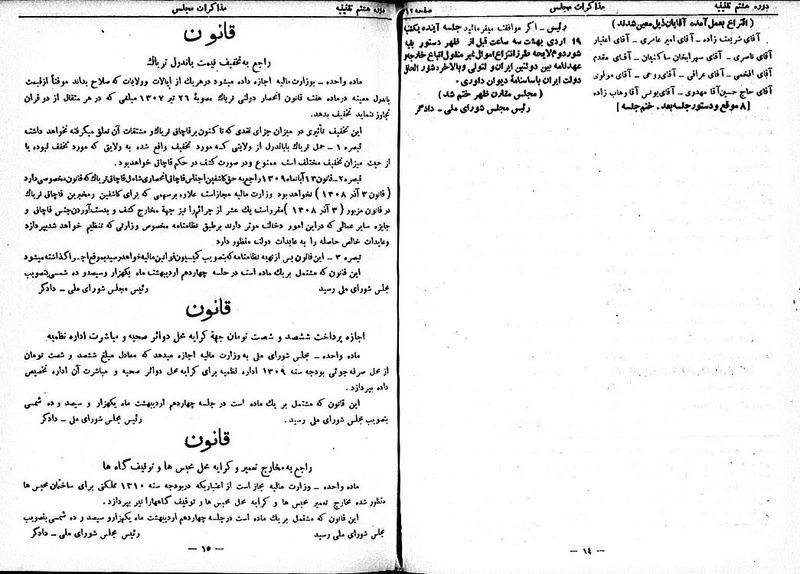 دوره هشتم تقنینیه
مذاکرات مجلس
صفحه ۱۲
( اقتراع بعمل آمده آقایان ذیل معین شدند )
آقای شریف زاده ـ آقای امیر عامری ـ آقای اعتبار
آقای ناصری ـ آقای سهراب خان ساکنیان ـ آقای مقدم
آقای افخمی ـ آقای عراقی ـ آقای روحی ـ آقای مولوی
آقای حاج حسین آقا مهدوی ـ آقای یونس آقا وهاب زاده
[ ۸ موقع و دستور جلسه بعد ـ ختم جلسه ]
رئیس ـ اگر موافقت میفرمائید جلسه آینده یکشنبه
۱۹ اردی بهشت سه ساعت قبل از ظهر دستور بقیه
شور دوم لایحه طرز انتزاع اموال غیر منقول اتباع خارجه و
عهدنامه بین دولتین ایران و لتونی و بالاخره شور الحاق
دولت ایران باساسنامهٔ دیوان داوری .
( مجلس مقارن ظهر ختم شد )
رئیس مجلس شورای ملی ـ دادگر
ـ ١٤ ـ
دوره هشتم تقنینیه
مذاکرات مجلس
قانون
راجع به تخفیف قیمت باندرل تریاک
ماده واحده ـ بوزارت مالیه اجازه داده میشود در هر یک از ایالات و ولایات که صلاح بداند موقتاً از قیمت
باندرل معینه در ماده هفت قانون انحصار دولتی تریاک مصوبهٔ ۲۶ تیر ۱۳۰۷ مبلغی که در هر مثقال از دو قران
تجاوز ننماید تخفیف بدهد .
این تخفیف تأثیری در میزان جزای نقدی که تا کنون بر قاچاق تریاک و مشتقات آن تعلق میگرفته نخواهد داشت
تبصره ۱ ـ حمل تریاک باباندرل از ولایتی که مورد تخفیف واقع شده به ولایتی که مورد تخفیف نبوده یا
از حیث میزان تخفیف مختلف است ممنوع و در صورت کشف در حکم قاچاق خواهد بود .
تبصره ۲ ـ قانون ۱۳ آبانماه ۱۳۰۹ راجع به حق کاشفین اجناس قاچاق انحصاری شامل قاچاق تریاک که قانون مخصوصی دارد
( قانون ۳ آذر ۱۳۰۸ ) نخواهد بود وزارت مالیه مجاز است علاوه بر سهمی که برای کاشفین و مخبرین قاچاق تریاک
در قانون مزبور ( ۳ آذر ۱۳۰۸ ) مقرر است یک عشر از جرائم را نیز جهة مخارج کشف و بدست آوردن جنس قاچاق و
جایزه سایر عمالی که در این امور دخالت موثر دارند بر طبق نظامنامه مخصوص وزارتی که تنظیم خواهد شد بپردازد
و عایدات خالص حاصله را به عایدات دولت منظور دارد
تبصره ۳ ـ این قانون پس از تهیه نظامنامه که بتصویب کمیسیون قوانین مالیه خواهد رسید بموقع اجرا گذاشته میشود
این قانون که مشتمل بر یک ماده است در جلسه چهاردهم اردیبهشت ماه یکهزار و سیصد و ده شمسی بتصویب
مجلس شورای ملی رسید رئیس مجلس شورای ملی ـ دادگر
قانون
اجازه پرداخت ششصد و شصت تومان جهة کرایه محل دوائر صحیه و مباشرت اداره نظمیه
ماده واحده ـ مجلس شورای ملی به وزارت مالیه اجازه میدهد که معادل مبلغ ششصد و شصت تومان
از محل صرفه جوئی بودجه سنه ۱۳۰۹ اداره نظمیه برای کرایه محل دوائر صحیه و مباشرت آن اداره تخصیص
داده بپردازد .
این قانون که مشتمل بر یک ماده است در جلسه چهاردهم اردیبهشت ماه یکهزار و سیصد و ده شمسی
بتصویب مجلس شورای ملی رسید . رئیس مجلس شورای ملی ـ دادگر
قانون
راجع به مخارج تعمیر و کرایه محل محبس ها و توقیف گاه ها
ماده واحده ـ وزارت مالیه مجاز است از اعتباریکه در بودجه سنه ۱۳۱۰ مملکتی برای ساختمان محبس ها
منظور شده مخارج تعمیر محبس ها و کرایه محل محبس ها و توقیف گاهها را نیز بپردازد .
این قانون که مشتمل بر یک ماده است در جلسه چهاردهم اردیبهشت ماه یکهزار و سیصد و ده شمسی بتصویب
مجلس شورای ملی رسید رئیس مجلس شورای ملی ـ دادگر
ـ ١٥ ـ